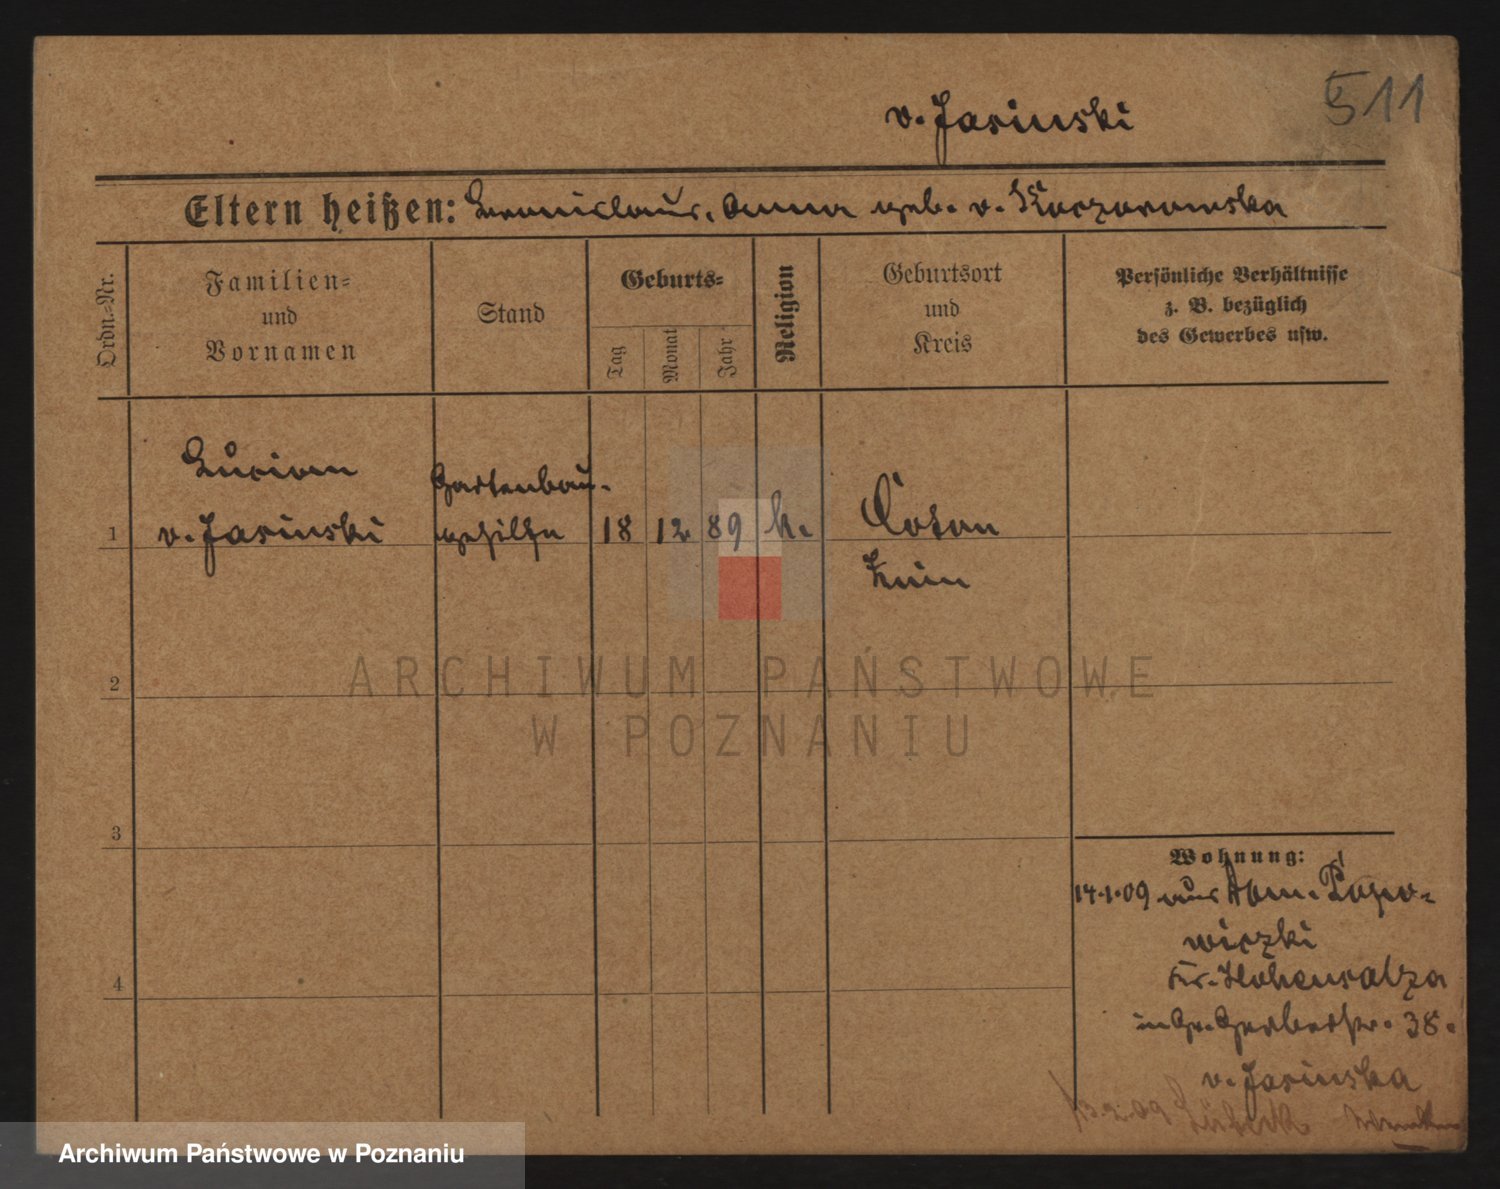 511
v. Jasinski
Eltern heißen: Bronislaus, Anna geb. v. Koczorowska
Ordn.-Nr.
Familien-
und
Vornamen
Stand
Geburts-
Tag
Monat
Jahr
Religion
Geburtsort
und
Kreis
Persönliche Verhältnisse
z. B. bezüglich
des Gewerbes usw.
Lucian
v. Jasinski
Gartenbau-
gehilfe
1
18
12
89
k.
Znin
2
3
4
Wohnung:
14.1.09 aus Dom. Popo-
wiczki
Kr. Hohensalza
in Gr. Gerberstr. 38.
v. Jasinska
13.2.09 Lübeck
ARCHIWUM PAŃSTWOWE
W POZNANIU
Archiwum Państwowe w Poznaniu